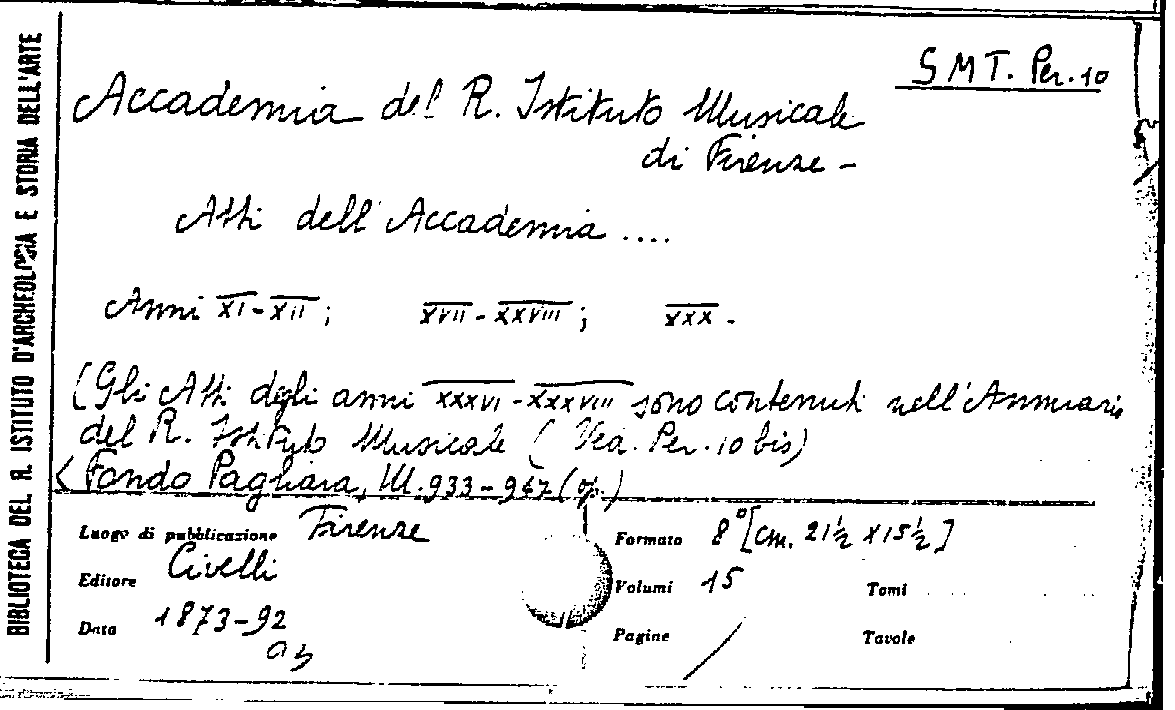 BIBLIOTECA DEL R. ISTITUTO D'ARCHEOLOGIA E STORIA DELL'ARTE
SMT. Per. 10
Accademia del R. Istituto Musicale
di Firenze -
Atti dell'Accademia ....
Anni XI-XII; XVII-XXVIII; XXX.
(Gli Atti degli anni XXXVI-XXXVIII sono contenuti nell'Annuario
del R. Istituto Musicale ( Ved. Per. 10 bis)
< Fondo Pagliara, M. 933-947 (op.)
Luogo di pubblicazione Firenze
Formato 8° [cm. 21½ x 15½]
Editore Civelli
Volumi 15
Tomi
Data 1873-92
Pagine
Tavole